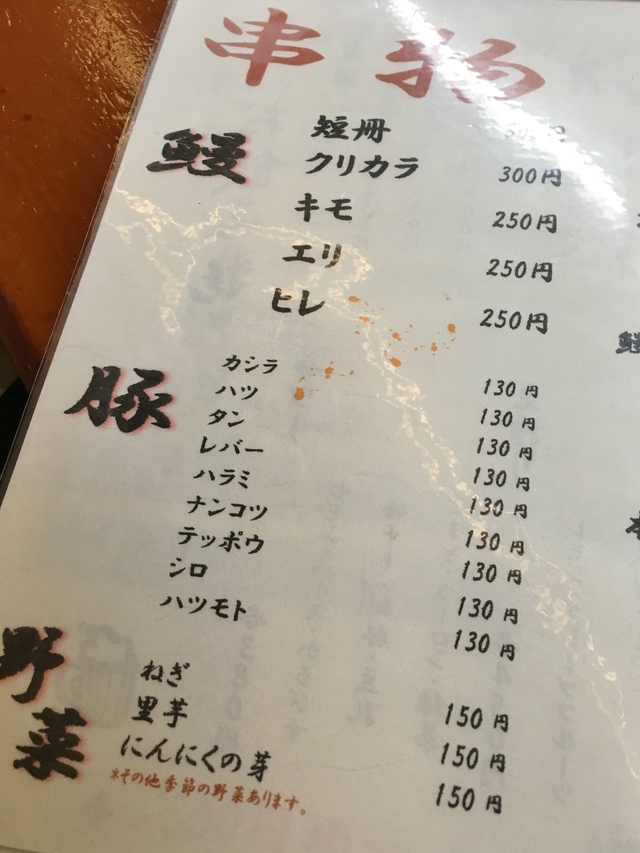 串物
鰻
短冊 円
クリカラ 300円
キモ 250円
エリ 250円
ヒレ 250円
豚
カシラ 130円
ハツ 130円
タン 130円
レバー 130円
ハラミ 130円
ナンコツ 130円
テッポウ 130円
シロ 130円
ハツモト 130円
野菜
ねぎ 150円
里芋 150円
にんにくの芽 150円
*その他季節の野菜あります。